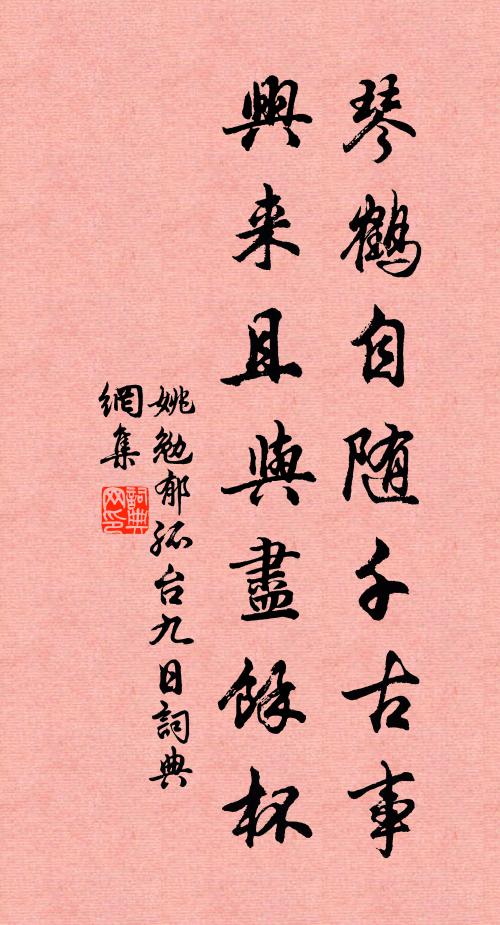 琴鶴自随千古事
興来且與盡餘杯
姚勉郁孤台九日詞典
網集
詞典
网印